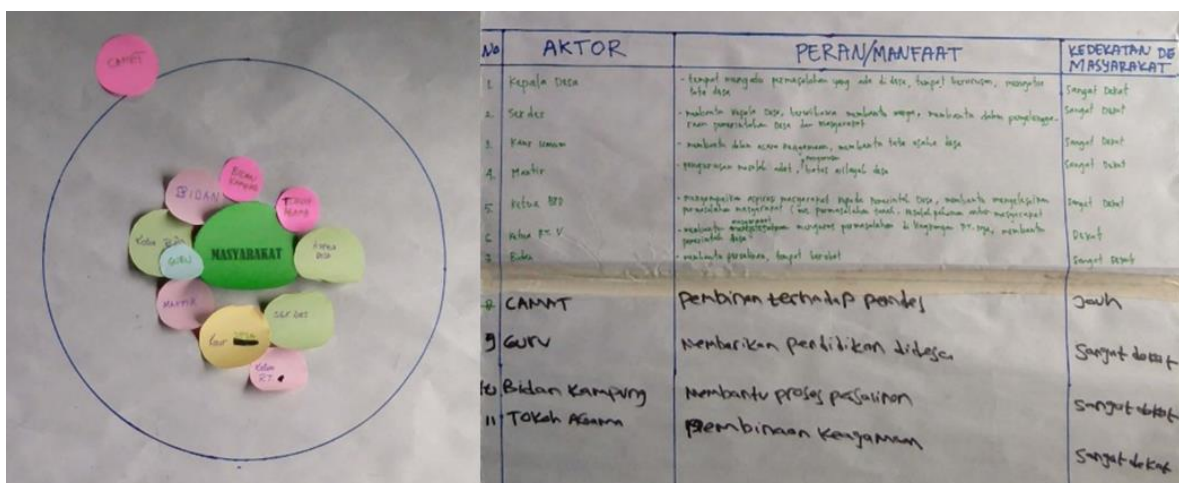 CAMAT
BIDAN
BIDAN
KAMPUNG
TOKOH
AGAMA
Ketua BPD
GURU
MASYARAKAT
KEPALA
DESA
MANTIR
SEKDES
Kaur
Ketua
RT.
No
AKTOR
PERAN/MANFAAT
KEDEKATAN DE
MASYARAKAT
1. Kepala Desa
- tempat mengadu permasalahan yang ada di desa, tempat berurusan, mengatur
tata desa
Sangat Dekat
2. Serdes
- membantu Kepala Desa, membantu warga, membantu dalam penyelengga-
raan pemerintahan Desa dan masyarakat
Sangat Dekat
3. Kaur Umum
- membantu dalam acara keagamaan, membantu tata usaha desa
Sangat Dekat
4. Mantir
- pengurusan masalah adat, batas wilayah desa
Sangat Dekat
5. Ketua BPD
- menyampaikan aspirasi masyarakat kepada Pemerintah Desa, membantu menyelesaikan
permasalahan masyarakat
Sangat Dekat
6. Ketua RT. V
- membantu mengurus permasalahan di lingkungan RT. nya, membantu
pemerintah desa
Dekat
7. Bidan
- membantu persalinan, tempat berobat
Sangat Dekat
8 CAMAT
Pembinan terhadap pemdes
Jauh
9 GURU
Memberikan pendidikan didesa
Sangat dekat
10. Bidan Kampung
Membantu proses persalinan
Sangat dekat
11 TOKOH AGAMA
Pembinaan Keagamaan
Sangat dekat